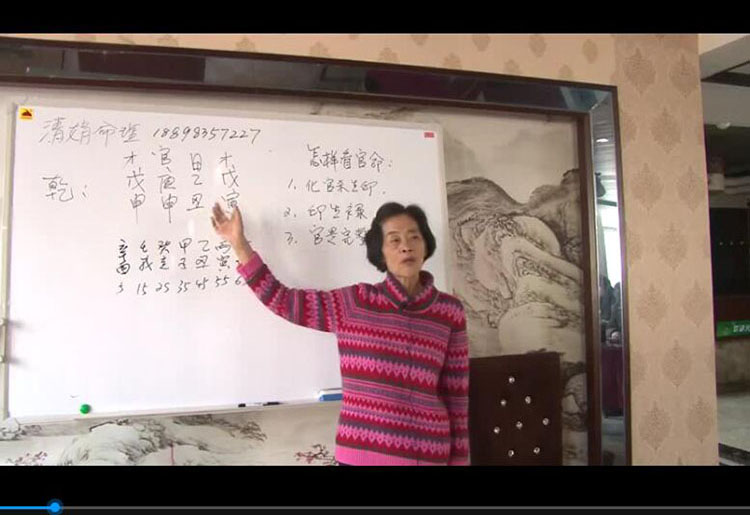 清娟命理 18898357227
才 官 日 才
乾： 戊 庚 乙 戊
申 申 丑 寅
辛 壬 癸 甲 乙 丙
酉 戌 亥 子 丑 寅
5 15 25 35 45 55 6
怎样看官命：
1. 化官杀生印.
2. 印生禄
3. 官是完整